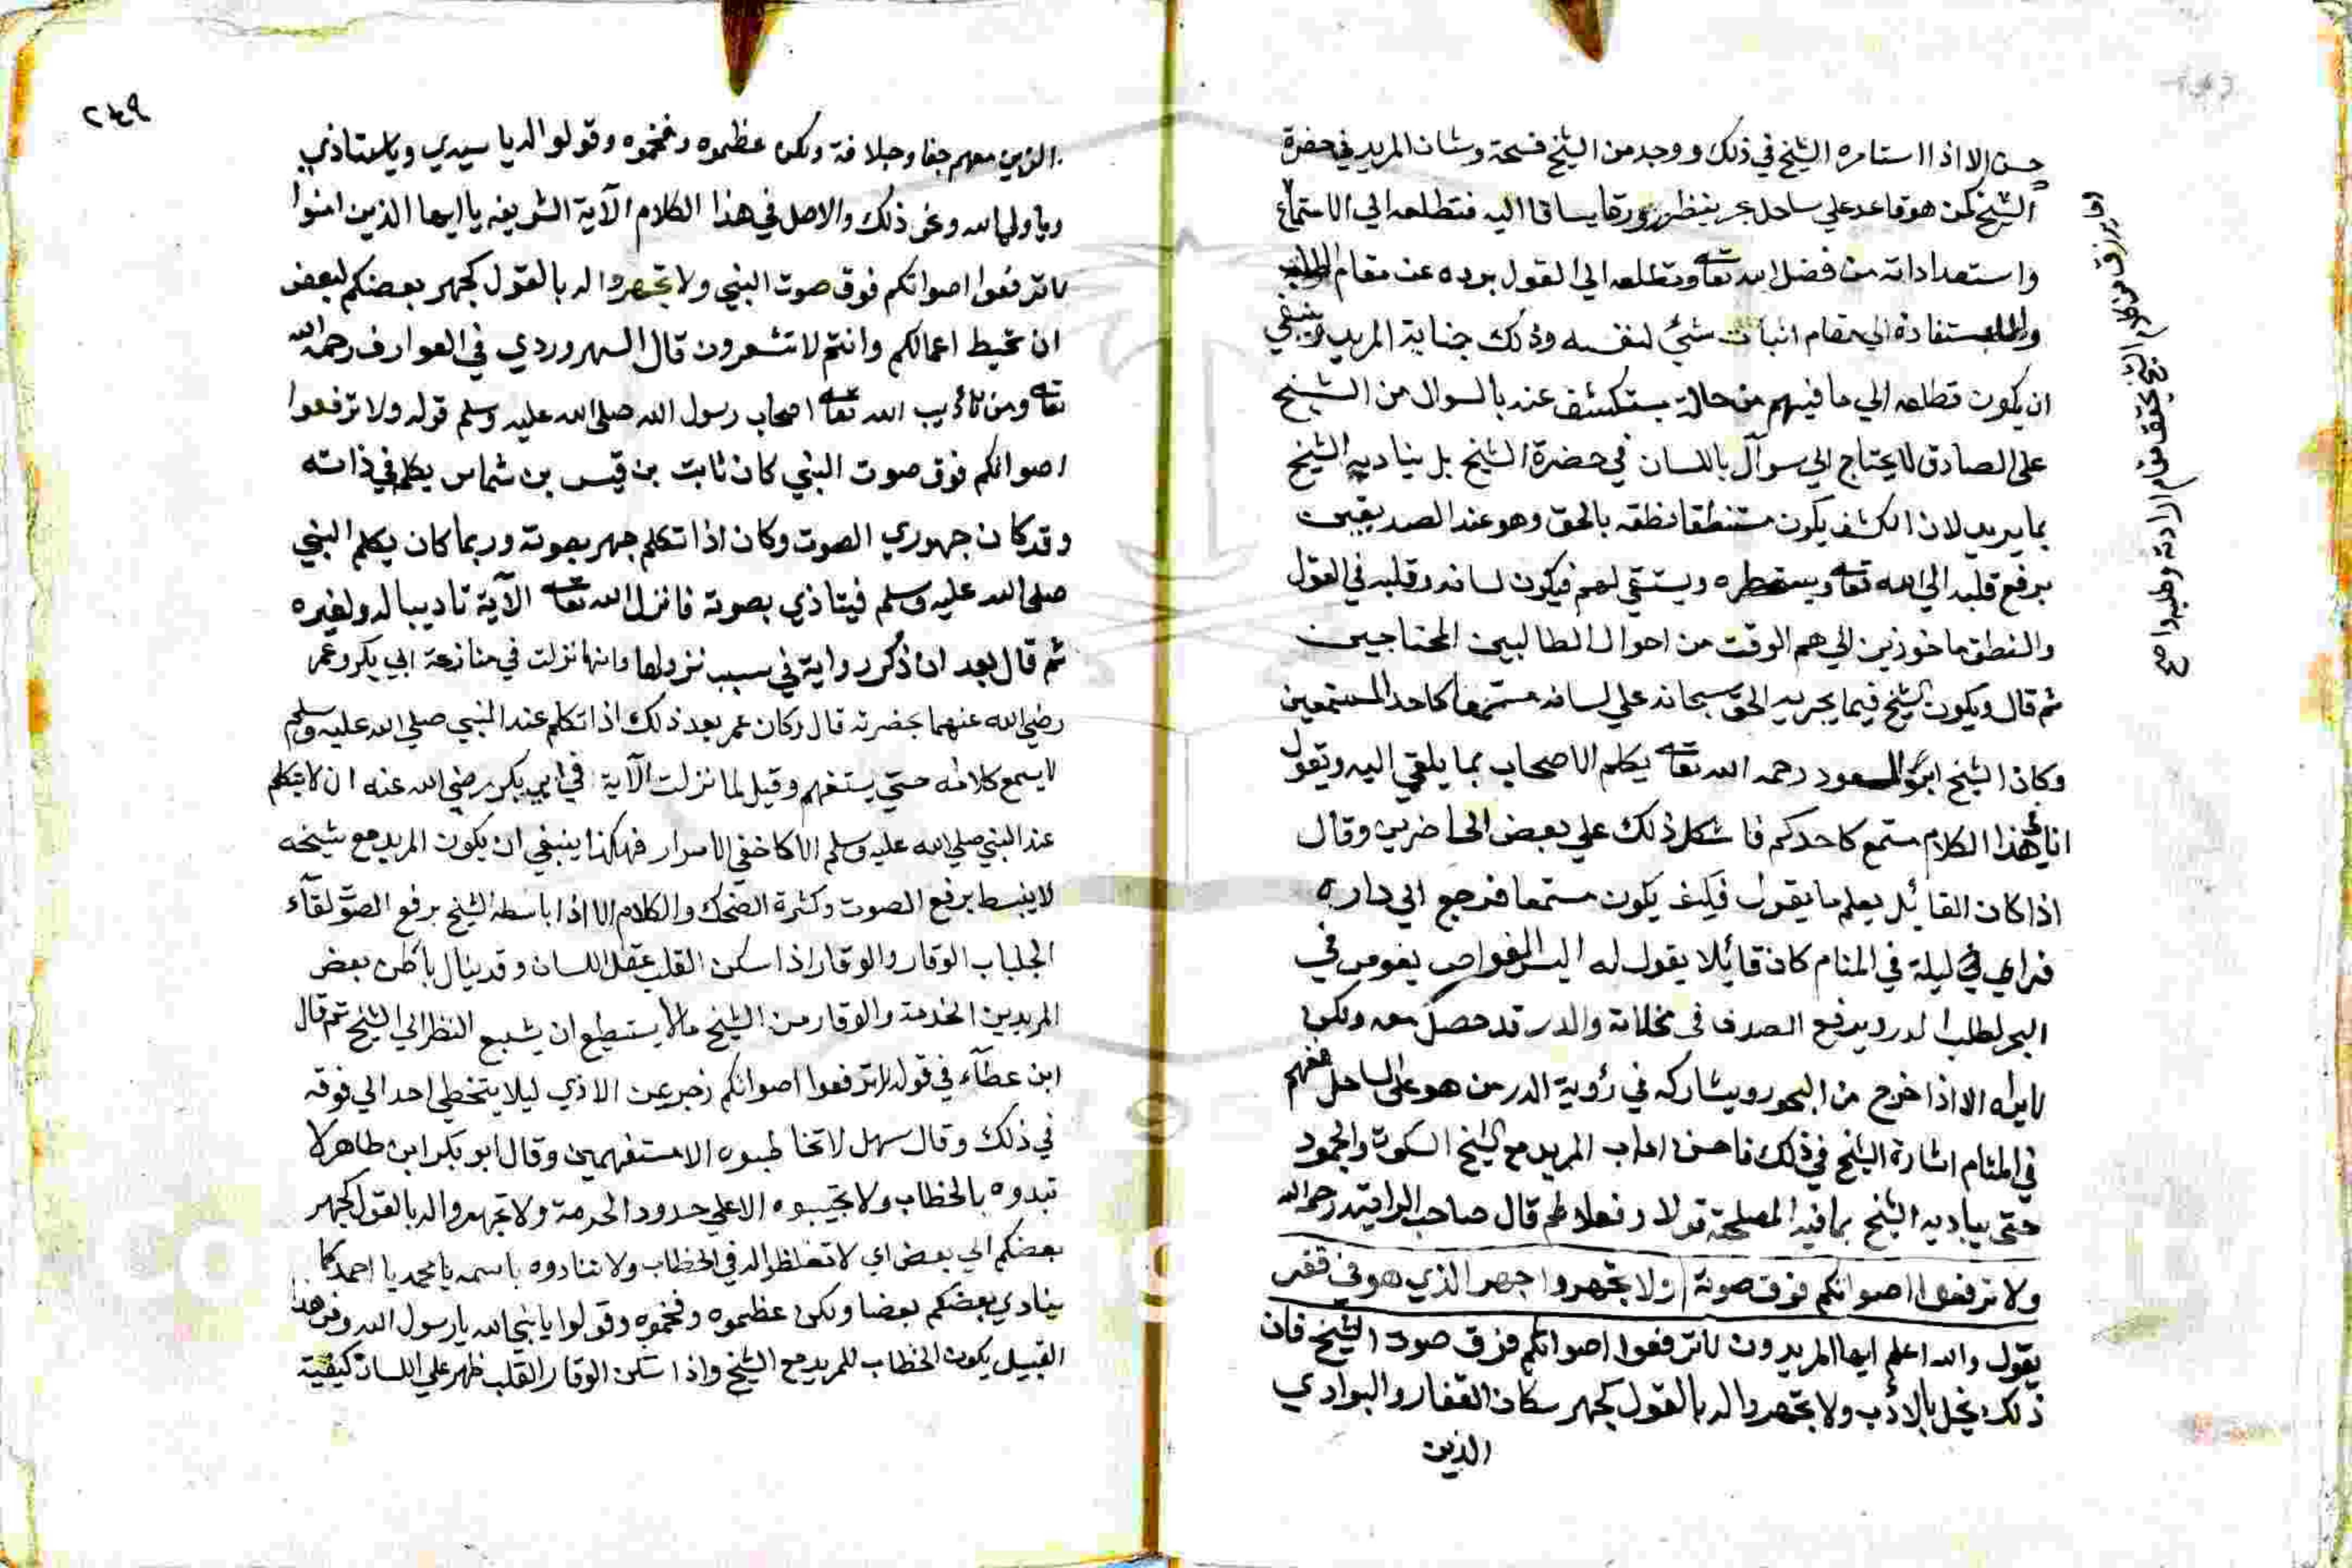 حسن الا اذا استامره الشيخ في ذلك ووجد من الشيخ فسحة وشان المريد في حضرة
الشيخ كمن هو قاعد علي ساحل بحر ينظر رزقا يساق اليه فتطلعه الي الاستماع
واستعداداته من فضل الله تعا وتطلعه الي القول يرده عن مقام الطلب
والاستفادة الي مقام اثبات شئ لنفسه وذلك جناية المريد وينبغي
ان يكون تطلعه الي ما فيهم من حاله يستكشف عنه بالسوال من الشيخ
علي الصادق لا يحتاج الي سوآل باللسان في حضرة الشيخ بل يناديه الشيخ
بما يريد لان الكشف يكون مستنطقا نطقه بالحق وهو عند الصديقين
يرفع قلبه الي الله تعا ويستمطره ويستقي لهم فيكون لسانه وقلبه في القول
والنطق ماخوذين الي هم الوقت من احوال الطالبين المحتاجين
ثم قال ويكون الشيخ فيما يجريه الحق سبحانه علي لسانه مستمعا كاحد المستمعين
وكان الشيخ ابو السعود رحمه الله تعا يكلم الاصحاب بما يلقي اليه ويقول
انا في هذا الكلام مستمع كاحدكم فاشكل ذلك علي بعض الحاضرين وقال
اذا كان القائيل يعلم ما يقول فكيف يكون مستمعا فرجع الي داره
فراي في ليلة في المنام كان قائيلا يقول له اليس الغواص يغوص في
البحر لطلب الدر ويرفع الصدف في مخلاته والدر قد حصل معه ولكن
لا يراه الا اذا خرج من البحر ويشاركه في رؤية الدر من هو علي الساحل ففهم
في المنام اشارة الشيخ في ذلك فاحسن اداب المريد مع الشيخ السكوت والجمود
حتي يباديه الشيخ بما فيه المصلحة قولا وفعلا ثم قال صاحب الرايته رحمه الله
ولا ترفعوا اصواتكم فوق صوته ولا تجهروا جهر الذي هو في قفر
يقول والله اعلم ايها المريدون لا ترفعوا اصواتكم فوق صوت الشيخ فان
ذلك يخل بالادب ولا تجهروا له بالقول كجهر سكان القفار والبوادي
الذين
الي الشيخ يحقق مقام الارادة وطلبه صح
٢٤٩
الذين معهم جفا وجلافة ولكن عظموه وفخموه وقولوا له يا سيدي ويا استاذي
ويا ولي الله ونحو ذلك والاصل في هذا الكلام الآية الشريفه يا ايها الذين امنوا
لا ترفعوا اصواتكم فوق صوت النبي ولا تجهروا له بالقول كجهر بعضكم لبعض
ان تحبط اعمالكم وانتم لا تشعرون قال السهروردي في العوارف رحمه الله
تعا ومن تاديب الله تعا اصحاب رسول الله صلي الله عليه وسلم قوله ولا ترفعوا
اصواتكم فوق صوت النبي كان ثابت بن قيس بن شماس يكلم في ذاته
وقد كان جهوري الصوت وكان اذا تكلم جهر بصوته وربما كان يكلم النبي
صلي الله عليه وسلم فيتاذي بصوته فانزل الله تعا الآية تاديبا له ولغيره
ثم قال بعد ان ذكر رواية في سبب نزولها وانها نزلت في منازعة ابي بكر وعمر
رضي الله عنهما بحضرته قال وكان عمر بعد ذلك اذا تكلم عند النبي صلي الله عليه وسلم
لا يسمع كلامه حتي يستفهم وقيل لما نزلت الآية في ابي بكر رضي الله عنه ان لا يتكلم
عند النبي صلي الله عليه وسلم الا كاخفي الاسرار فهكذا ينبغي ان يكون المريد مع شيخه
لا ينبسط برفع الصوت وكثرة الضحك والكلام الا اذا باسطه الشيخ برفع الصوت لقآء
الجلباب الوقار والوقار اذا سكن القلب عقل اللسان وقد ينال باطن بعض
المريدين الخدمة والوقار من الشيخ ما لا يستطيع ان يشبع النظر الي الشيخ ثم قال
ابن عطآء في قوله لا ترفعوا اصواتكم زجر عن الاذي ليلا يتخطي احد الي فوقه
في ذلك وقال سهل لا تخاطبوه الا مستفهمين وقال ابو بكر ابن طاهر لا
تبدوه بالخطاب ولا تجيبوه الا علي حدود الحرمة ولا تجهروا له بالقول كجهر
بعضكم الي بعض اي لا تغلظوا له في الخطاب ولا تنادوه باسمه يا محمد يا احمد كما
ينادي بعضكم بعضا ولكن عظموه وفخموه وقولوا يا نبي الله يا رسول الله ومن هذا
القبيل يكون الخطاب للمريد مع الشيخ واذا سكن الوقار القلب ظهر علي اللسان كيفية